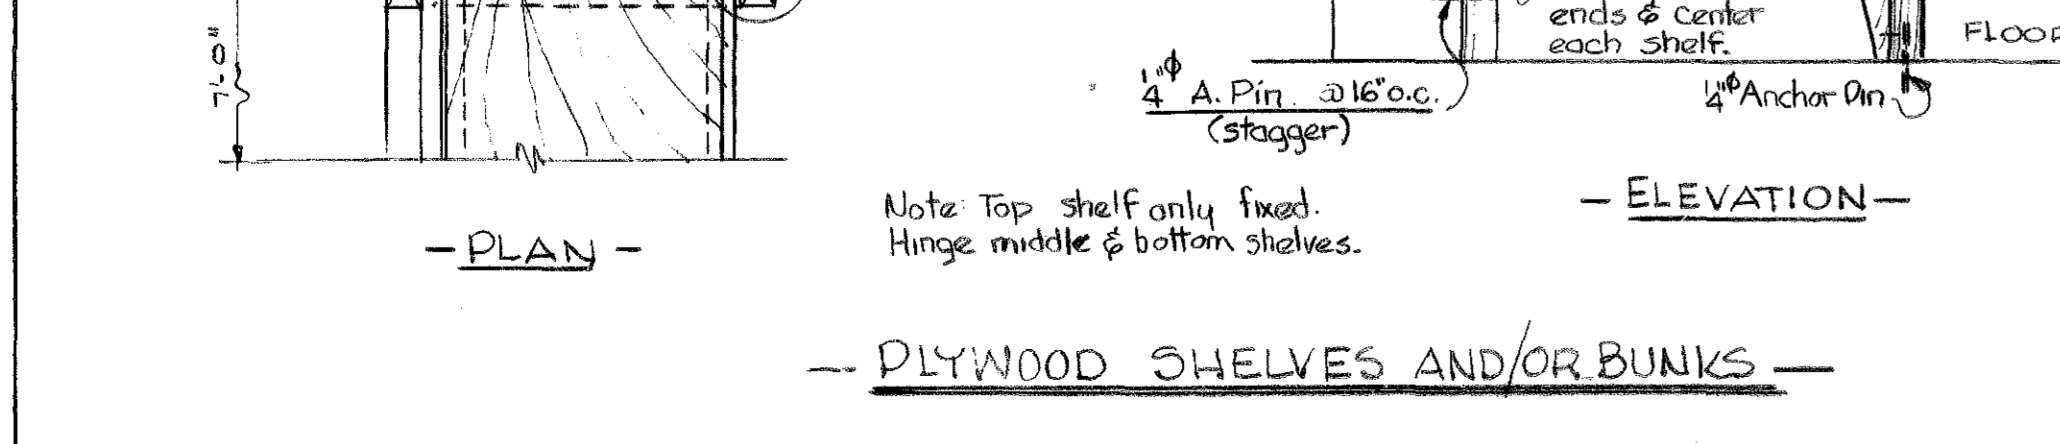 7'-0"
ends & center
each shelf.
FLOOR
1/4"ϕ A. Pin @ 16" o.c.
(stagger)
1/4"ϕ Anchor Pin
Note: Top shelf only fixed.
Hinge middle & bottom shelves.
- ELEVATION -
- PLAN -
- PLYWOOD SHELVES AND/OR BUNKS -